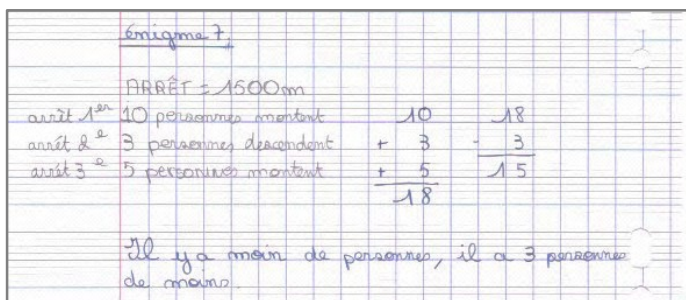 énigme 7,
ARRÊT = 1500m
arrêt 1er 10 personnes montent 10 18
arrêt 2e 3 personnes descendent + 3 - 3
arrêt 3e 5 personnes montent + 5 15
18
Il y a moin de personnes, il a 3 personnes
de moins.